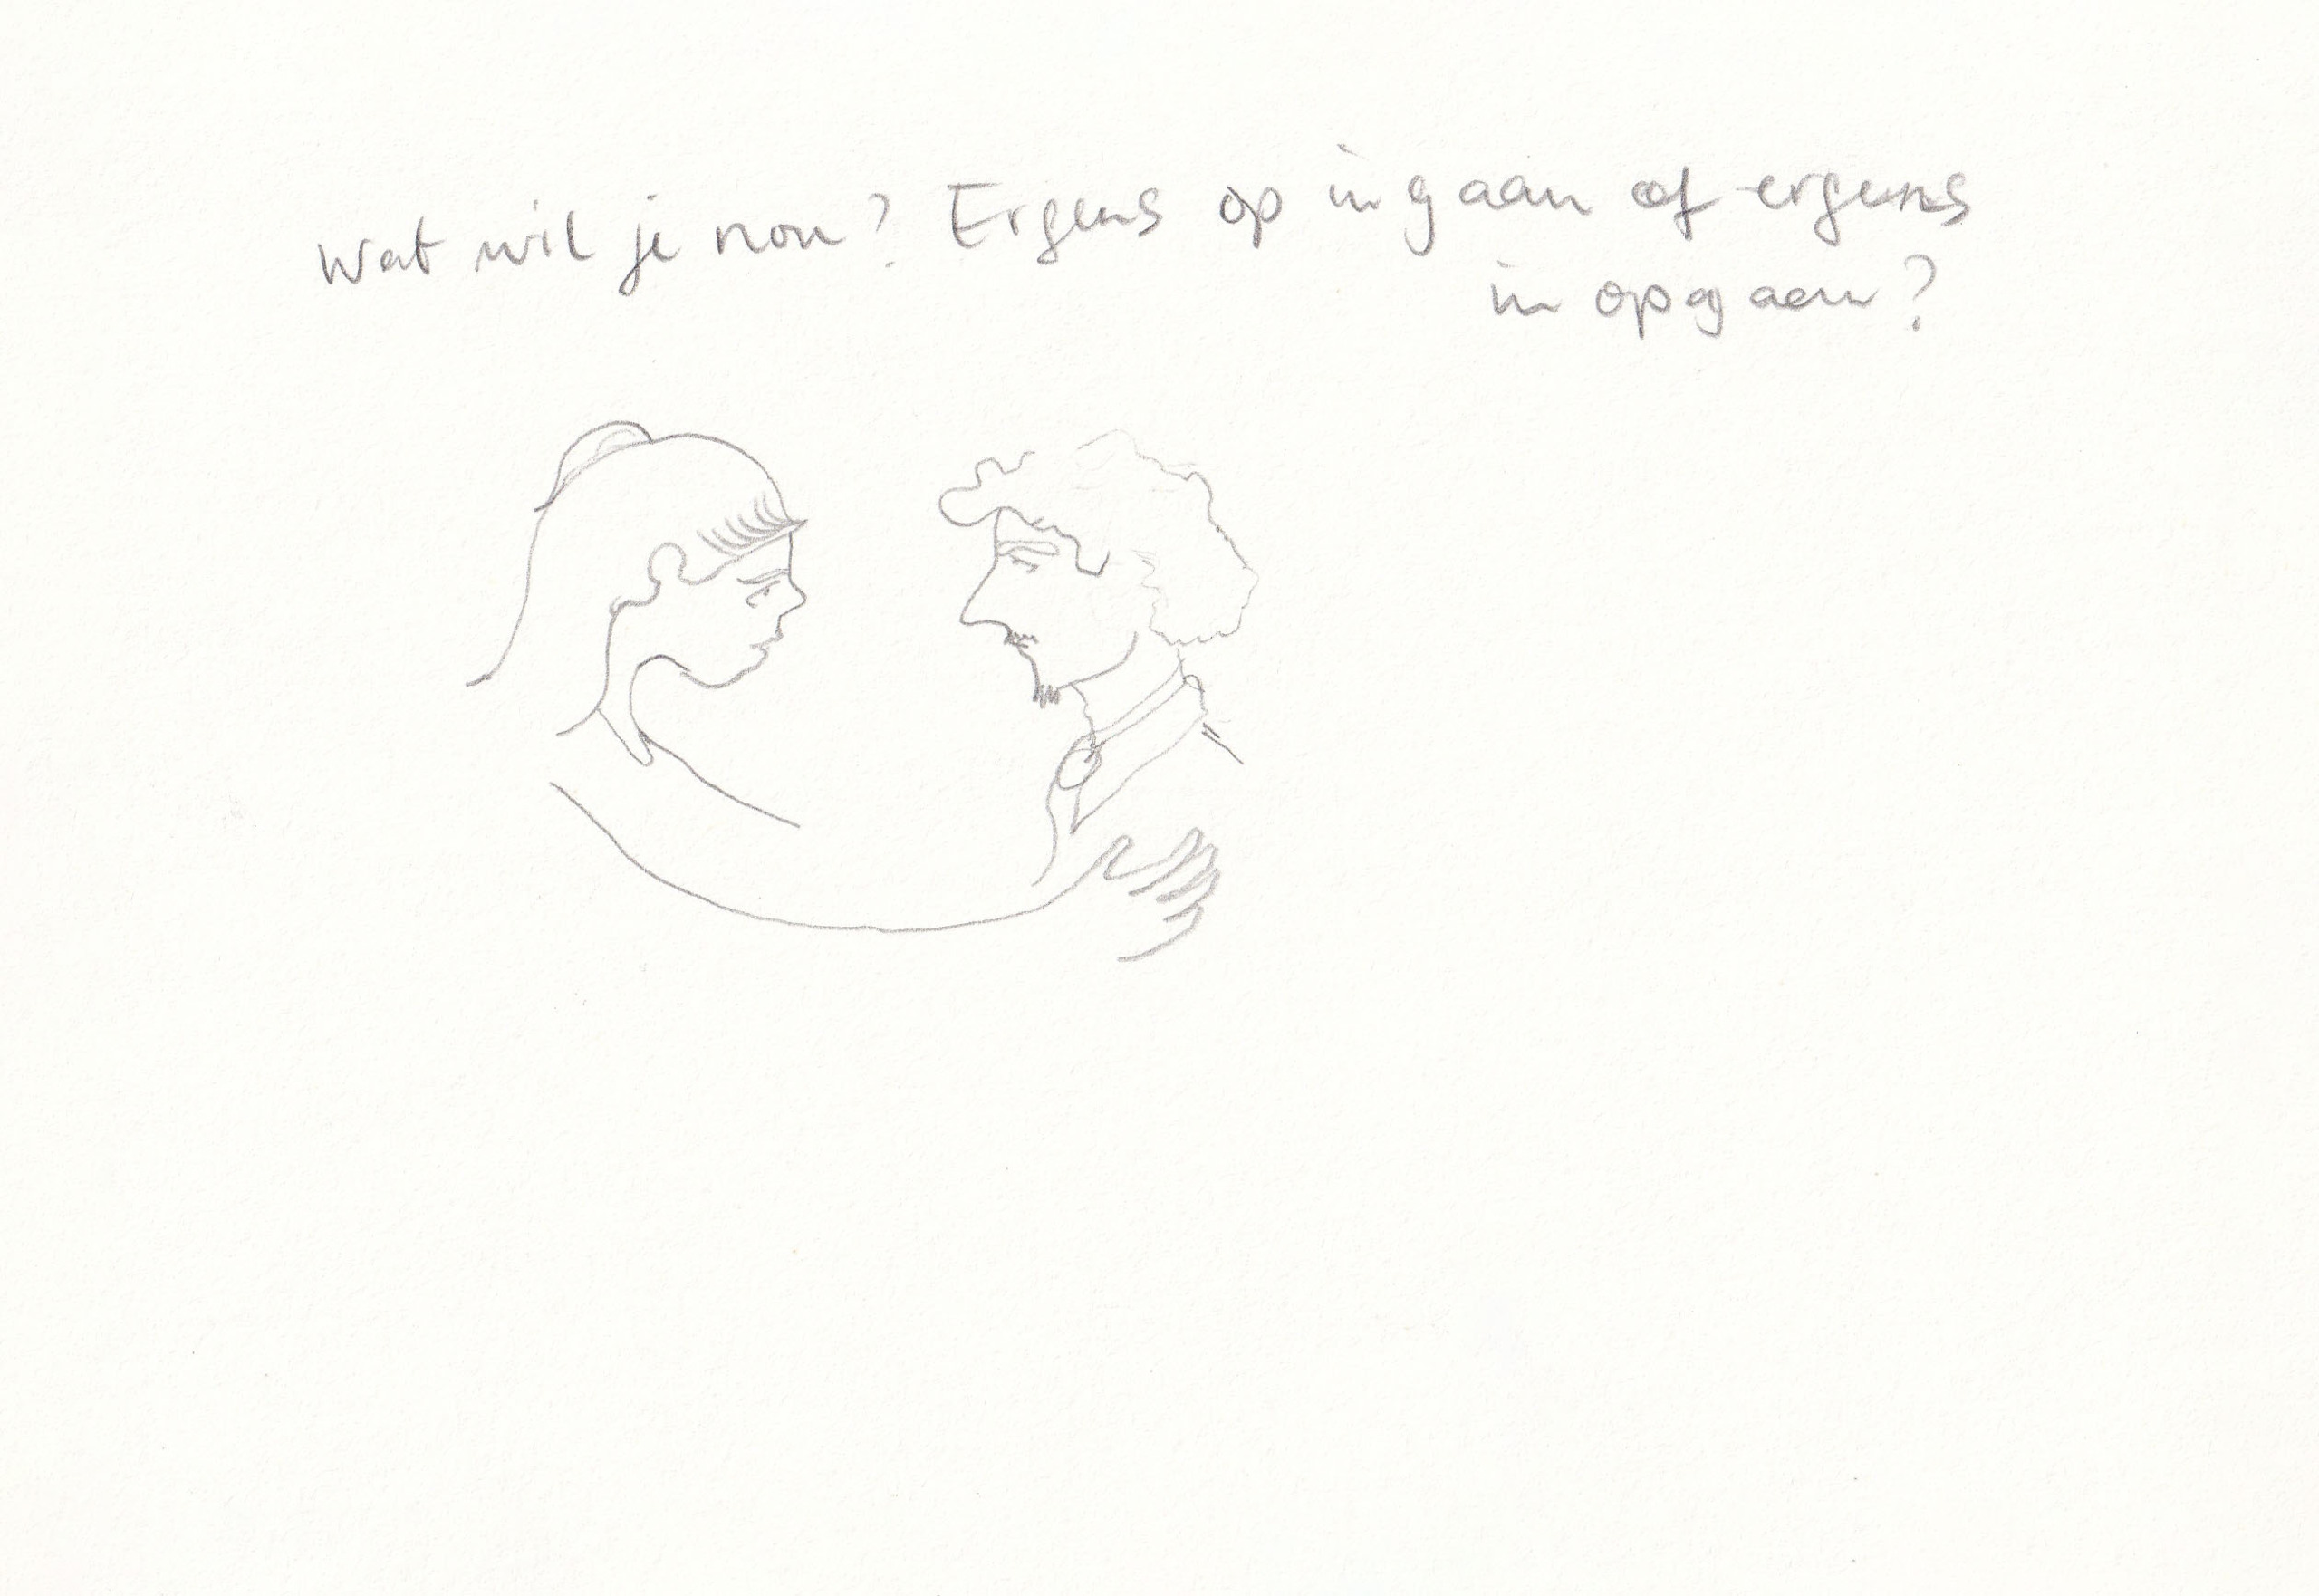 Wat wil je nou? Ergens op ingaan of ergens
in opgaan?